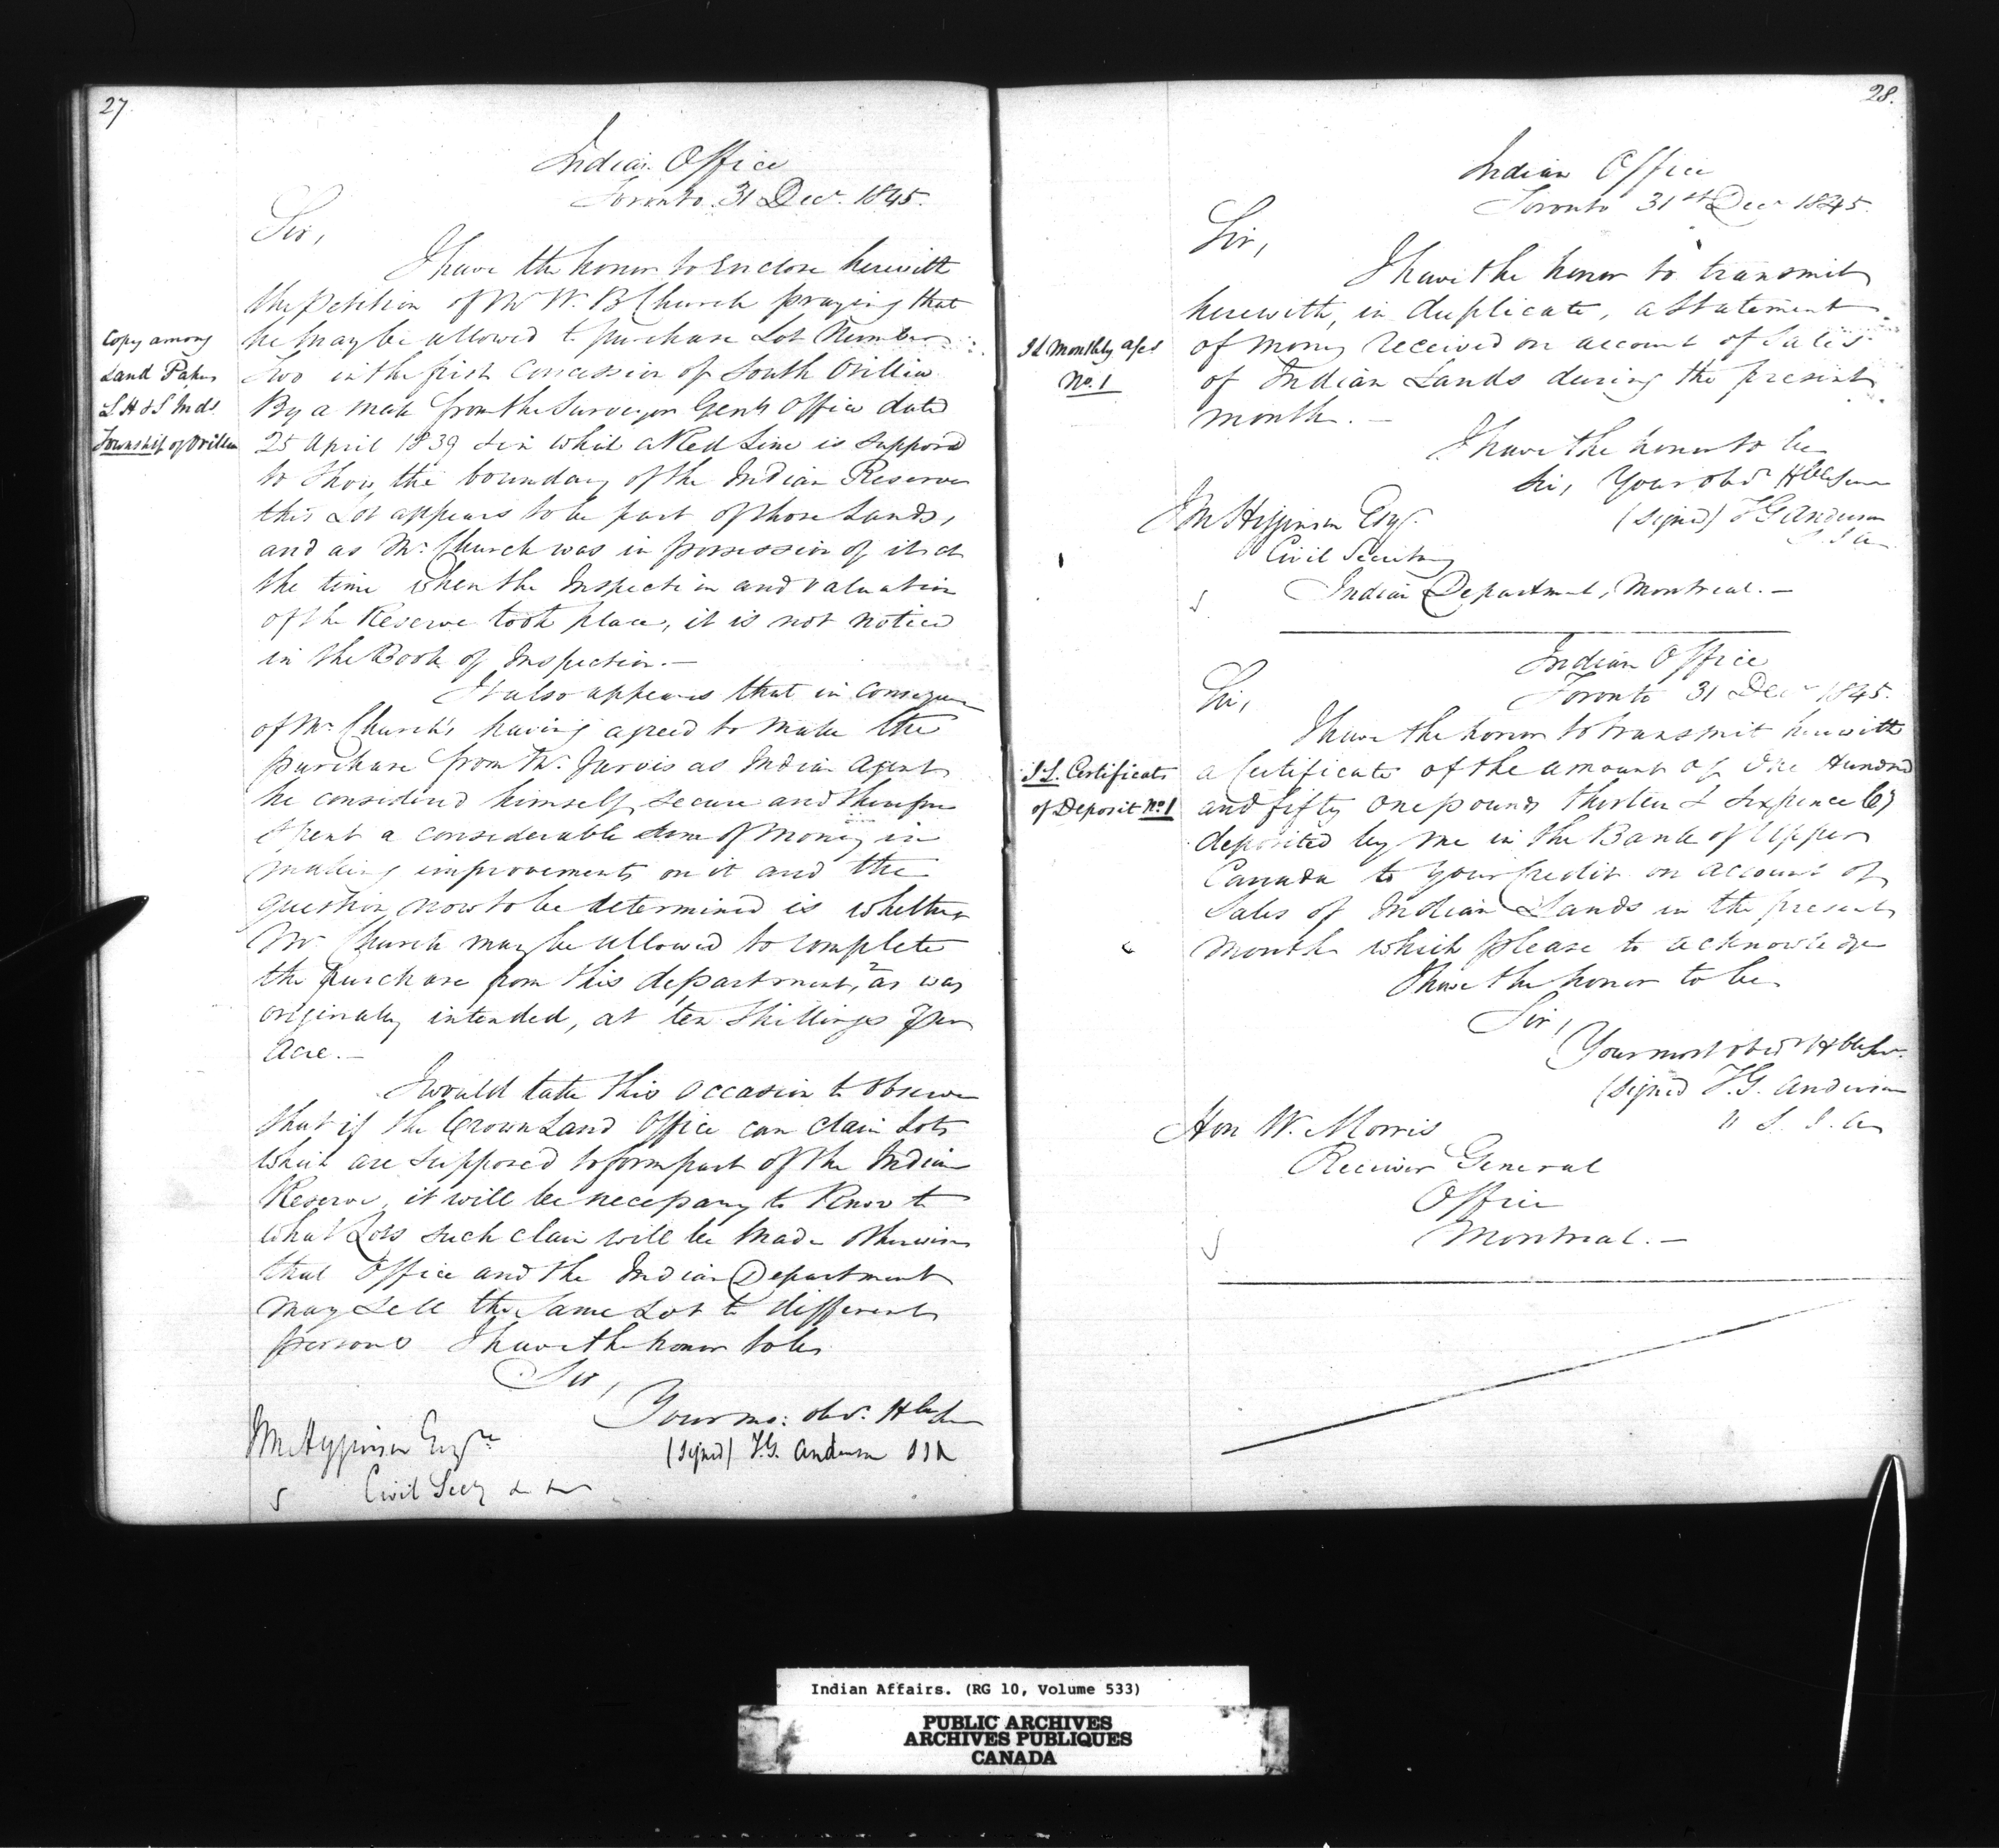 27
Indian Office
Toronto 31 Decr 1845.
Sir,
I have the honor to enclose herewith
the petition of Mr W. B Church praying that
he may be allowed to purchase Lot Number
Two in the first Concession of South Orillia
By a                 from the Surveyor Genls Office dated
25 April 1839 & in which a Red Line is supposed
to show the boundary of the Indian Reserve
this Lot appears to be part of those Lands,
and as Mr Church was in possession of it at
the time when the Inspection and valuation
of the Reserve took place, it is not noticed
in the Book of Inspection.—
It also appears that in consequen
of Mr Church's having agreed to make the
purchase from Mr Jarvis as Indian Agent
he considered himself secure and therefore
spent a considerable sum of money in
making improvements on it and the
question now to be determined is whether
Mr Church may be allowed to complete
the purchase from this department, as was
originally intended, at ten Shillings per
Acre.—
I would take this occasion to observe
that if the Crown Land Office can claim Lots
which are supposed to form part of the Indian
Reserve, it will be necessary to know to
what Lots such claim will be made otherwise
that Office and the Indian Department
may sell the same Lot to different
persons I have the honor to be
Sir,
Your mo: obt. Hble Ser
(signed) T.G. Anderson SIA
J M Higginson Esqre
Civil Secy &c &c
Copy among
Land Papers
L H & S Inds
Township of Orillia
28.
Indian Office
Toronto 31st Decr 1845.
Sir,
I have the honor to transmit
herewith, in duplicate, a Statement
of money received on account of Sales
of Indian Lands during the present
month.—
I have the honor to be
Sir, Your obt Hble Serv
(signed) T G Anderson
S. I. A
J M Higginson Esqr.
Civil Secretary
Indian Department, Montreal.—
I L Monthly a/cs
No. 1
Indian Office
Toronto 31 Decr 1845.
Sir,
I have the honor to transmit herewith
a Certificate of the amount of One Hundred
and fifty one pounds thirteen & sixpence Cy
deposited by me in the Bank of Upper
Canada to your Credit on account of
Sales of Indian Lands in the present
month which please to acknowledge
I have the honor to be
Sir,
Your most obedt Hble Sert.
(signed T.G. Anderson
" S. I. A
Hon W. Morris
Receiver General
Office
Montreal.—
I L. Certificate
of Deposit No 1
Indian Affairs. (RG 10, Volume 533)
PUBLIC ARCHIVES
ARCHIVES PUBLIQUES
CANADA